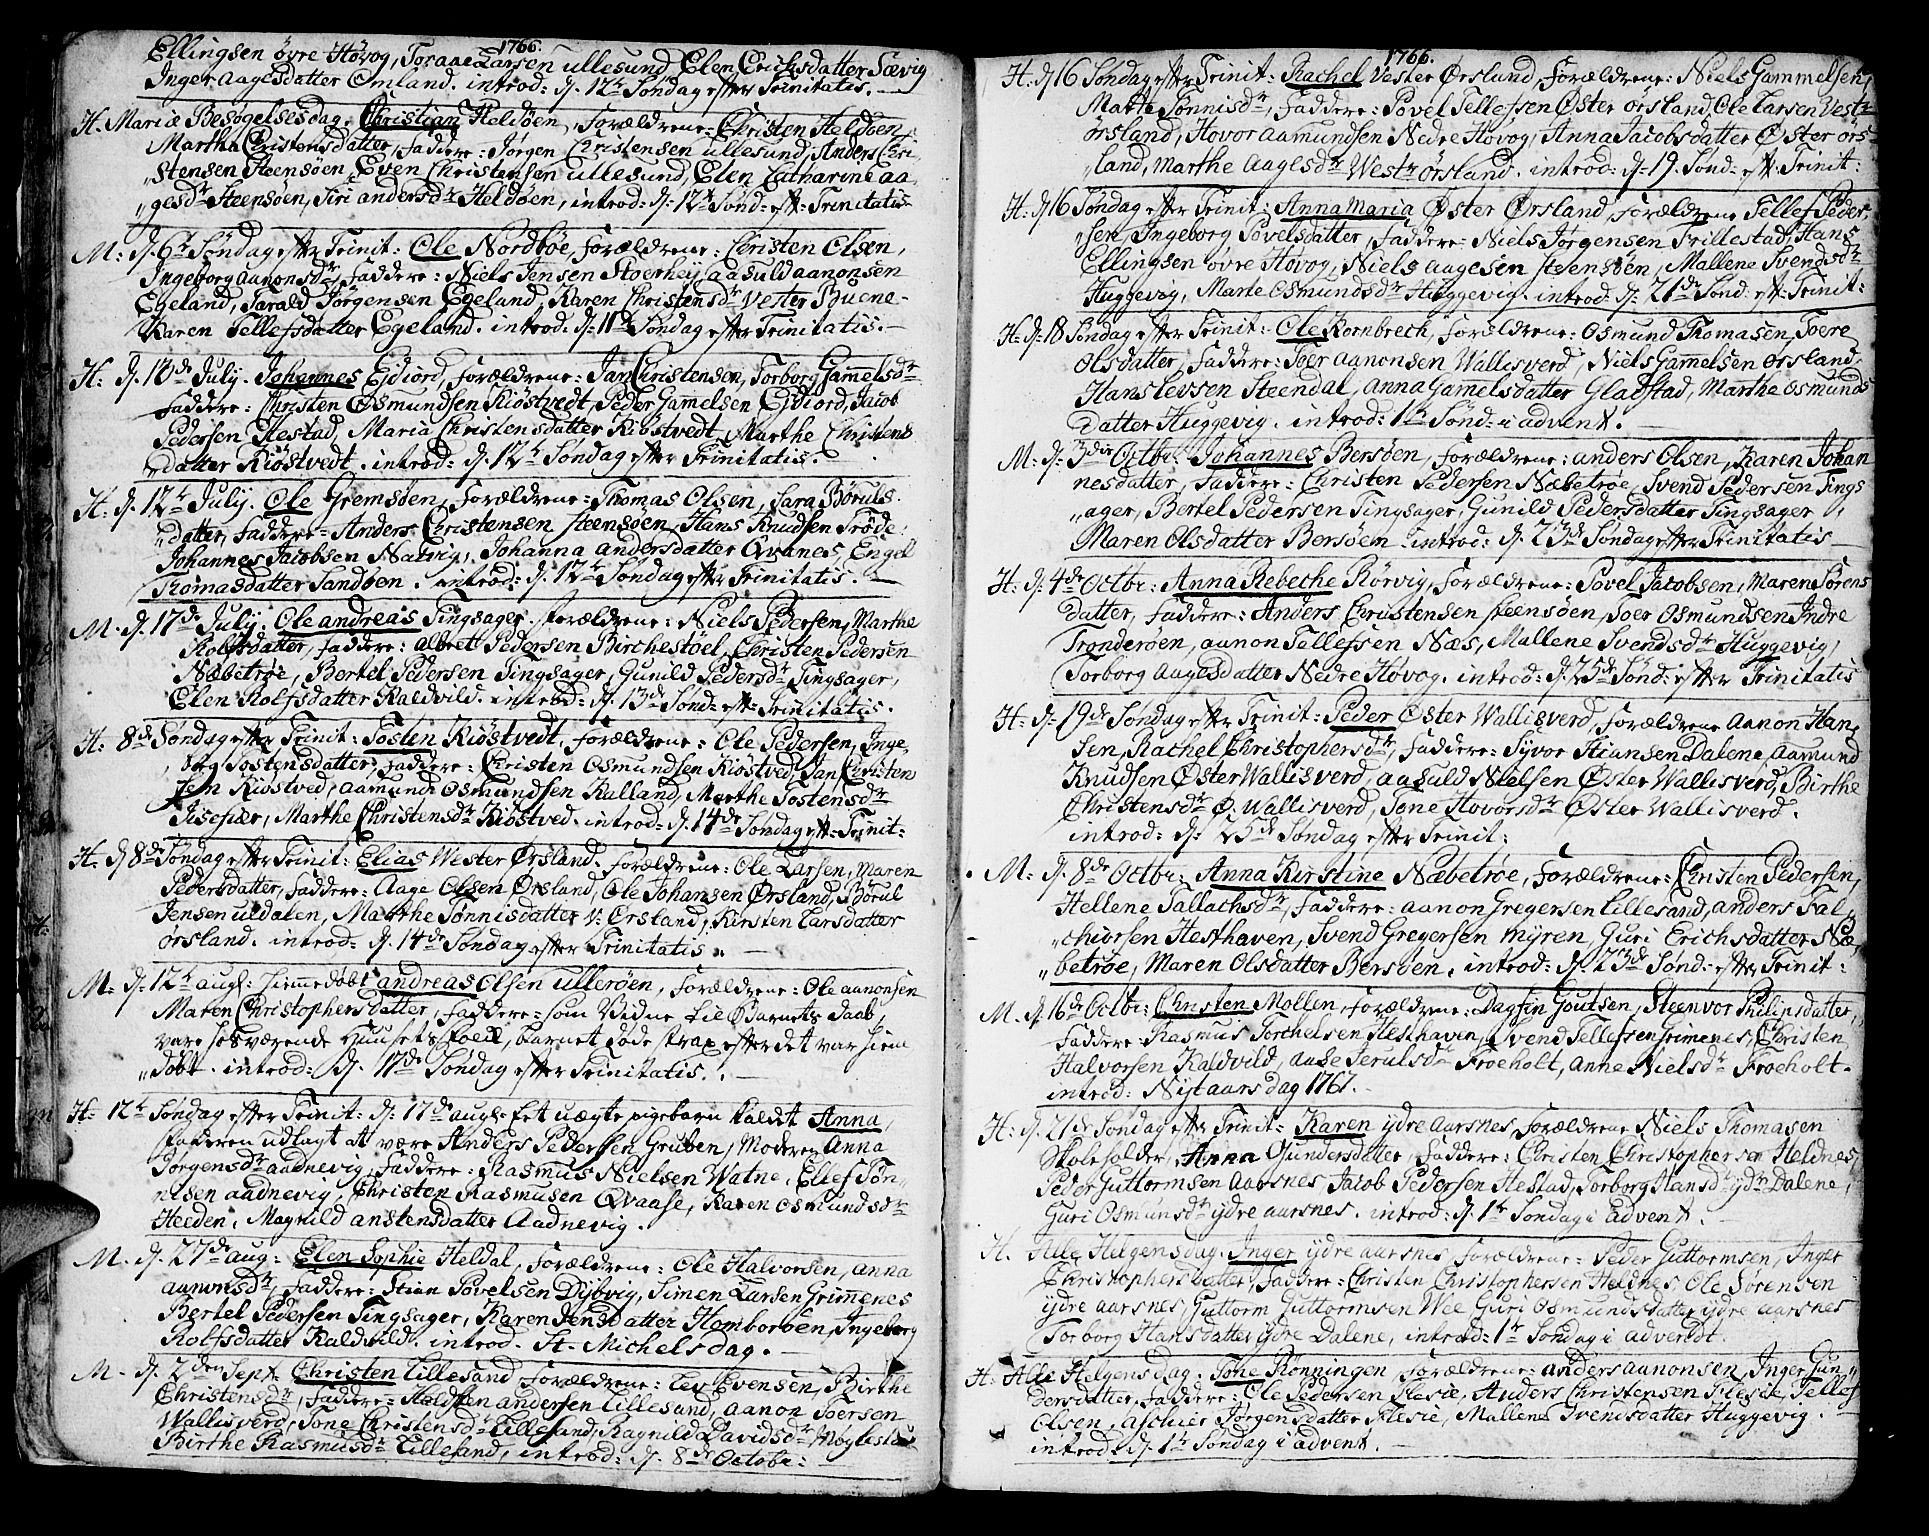 1766.
Ellingsen övre Hövog, Torane Larsen ullesund Elen Erichsdatter Sævig
Inger Aagesdatter Omland. introd: d. 12te Söndag efter Trinitatis.
H. Mariæ Besøgelsesdag. Christian Heldöen, Forældrene: Christen Heldöen,
Martha Christensdatter, Faddere: Jørgen Christensen ullesund, Anders Chri-
„stensen Steensöen, Even Christensen ullesund, Elen Catharine Aa-
„gesdr Steensöen, Siri andersdr Heldöen, introd: d. 12te Sönd: eft: Trinitatis
M: d. 6te Söndag efter Trinit: Ole Nordböe, Forældrene: Christen Olsen,
Ingeborg Aanonsdr, Faddere: Niels Jensen Stoerhej, Aasuld Aanonsen
Egeland, Tarald Jörgensen Egeland, Karen Christensdr Vester Buene-
Karen Tellefsdatter Egeland. introd: d. 11te Söndag efter Trinitatis.
H: d. 10de July. Johannes Ejdiord, Forældrene: Jan Christensen, Torborg Gamelsdr
Faddere: Christen Osmundsen Kiöstvedt, Peder Gamelsen Ejdiord, Jacob
Pedersen Hestad, Maria Christensdatter Kiöstvedt, Marthe Christens
datter Kiöstvedt. introd: d. 12te Söndag efter Trinitatis.
H: d. 12te July. Ole Gremsöen, Forældrene: Thomas Olsen, Sara Böruls-
„datter, Faddere: Anders Christensen Steensöen, Hans Knudsen Tröde,
Johannes Jacobsen Natvig, Johanna andersdatter Qvanes, Engel
Thomasdatter Sandöen. introd: d. 12te Söndag efter Trinitatis.
M. d. 17de July. Ole andreas Tingsager. Forældrene: Niels Pedersen, Marthe
Rolfsdatter, Faddere: Albret Pedersen Birchestöel, Christen Pedersen
Næbetröe, Bertel Pedersen Tingsager, Gunild Pedersdr Tingsager,
Elen Rolfsdatter Kaldvild. introd: d. 13de Sönd: eft: Trinitatis.
H: 8de Söndag efter Trinit: Tosten Kiöstvedt, Forældrene: Ole Pedersen, Inge-
„borg Tostensdatter, Faddere: Christen Osmundsen Kiöstved, Jan Christen
sen Kiöstved, Aamund Osmundsen Kalland, Marthe Tostensdr
Tisefiær, Marthe Christensdr Kiöstved. introd: d. 14de Söndag eft: Trinit:
H. d. 8de Söndag efter Trinit: Elias Wester Ørsland. Forældrene: Ole Larsen, Maren
Pedersdatter, Faddere: Aage Olsen Ørsland, Ole Johansen Ørsland, Börul
Jensen uldalen, Marthe Tönnisdatter V: Ørsland, Kirsten Larsdatter
örsland. introd: d. 14de Söndag efter Trinitatis.
M: d. 12te aug: hiemmedöbt andreas Olsen ulleröen, Forældrene: Ole aanonsen
Maren Christophersdatter, Faddere: som Vidne til Barnets Daab,
vare hosværende Huusets Folck, barnet döde strax efter det var hiem
„döbt. introd: d. 17de Söndag efter Trinitatis.
H: 12te Söndag efter Trinit: d: 17de aug: Eet uægte pigebarn kaldet Anna,
faderen udlagt at være Anders Pedersen Gruben, Moderen Anna
Jørgensdr Aadnevig, Faddere: Rasmus Nielsen Watne, Ellef Tön-
nisen Aadnevig, Christen Rasmusen Qvaase, Karen Osmundsdr
Heeden, Magnild anstensdatter Aadnevig.
M: d. 27de aug: Elen Sophie Heldal, Forældrene: Ole Halvorsen, Anna
aanonsdr, Faddere: Stian Povelsen Dybvig, Simen Larsen Grimenes
Bertel Pedersen Tingsager, Karen Jensdatter Homboröen, Ingeborg
Rolfsdatter Kaldvild. introd. St. Michelsdag.
M. d. 2den Sept. Christen Lillesand Forældrene: Lev Evensen, Birthe
Christensdr, Faddere: Haldsten andersen Lillesand, Aanon Toersen
Wallisverd, Tone Christensdr Lillesand, Ragnild Davidsdr Möglestue
Birthe Rasmusdr Lillesand, introd: d. 8de Octobr:
1766.
H. d. 16 Söndag efter Trinit: Rachel Vester Ørsland, Forældrene: Niels Gammelsen,
Marte Tönnisdr, Faddere: Povel Tellefsen Øster örsland, Ole Larsen Vestr
örsland, Hovor Aamundsen Nedre Hovog, Anna Jacobsdatter Øster örs-
„land, Marthe Aagesdr Westr örsland. introd: d. 19. Sönd: eft: Trinit:
H: d. 16 Söndag efter Trinit: Anna Maria Øster Ørsland, Forældrene Tellef Peder-
„sen, Ingeborg Povelsdatter, Faddere: Niels Jørgensen Trillestad, Hans
Ellingsen övre Hovog, Niels Aagesen Steensöen, Mallene Svendsdr
Huggevig, Marte Osmundsdr Huggevig. introd: d. 21de Sönd: eft: Trinit:
H: d: 18 Söndag efter Trinit: Ole Kornbrech, Forældrene: Osmund Thomasen, Toere
Olsdatter, Faddere: Toer Aanonsen Wallisverd, Niels Gamelsen Orsland,
Hans Levsen Steendal, Anna Gamelsdatter Gladstad, Marthe Osmunds
datter Huggevig. introd: 1te Sönd: i advent.
M: d. 3die Octbr: Johannes Bersöen, Forældrene: anders Olsen, Karen Johan
nesdatter, Faddere: Christen Pedersen Næbetröe, Svend Pedersen Tings
„ager, Bertel Pedersen Tingsager, Gunild Pedersdatter Tingsager,
Maren Olsdatter Bersöen. introd: d. 23de Söndag efter Trinitatis
H: d. 4de Octbr: Anna Rebecke Rörvig, Forældrene: Povel Jacobsen, Maren Sörens
datter, Faddere: Anders Christensen Steensöen, Toer Osmundsen Indre
Tronderöen, Aanon Tellefsen Næs, Mallene Svendsdr Huggevig,
Torborg Aagesdatter Nedre Hövog. introd: d. 25de Sönd: efter Trinitatis
H: d: 19de Söndag efter Trinit: Peder Øster Wallisverd, Forældrene Aanon Han-
sen, Rachel Christophersdr, Faddere: Syvor Stiansen Dalene, Aamund
Knudsen Øster Wallisverd, Aasuld Nielsen Øster Wallisverd, Birthe
Christensdr Ø. Wallisverd, Tone Hovorsdr Øster Wallisverd.
introd: d. 25de Söndag efter Trinit:
M: d. 8de Octbr: Anna Kirstine Næbetröe, Forældrene: Christen Pedersen,
Hellene Tallachsdr, Faddere: Aanon Gregersen Lillesand, anders Fal-
„chiorsen Hesthaven, Svend Gregersen Myren, Guri Erichsdatter Næ-
„betröe, Maren Olsdatter Bersöen. introd: d. 23de Sönd: efter Trinit:
M. d. 16de Octbr: Christen Mollen, Forældrene: Dagfin Goutsen, Steenvor Philipsdatter,
Faddere: Rasmus Torchelsen Hesthaven, Svend Tellefsen Grimenes, Christen
Halvorsen Kaldvild, Aase Terulsdr Froeholt, Anne Nielsdr Froeholt.
introd: Nytaarsdag 1767.
H: d. 21de Söndag efter Trinit: Karen ydre Aarsnes, Forældrene Niels Thomasen
Skoleholder, Anna Gundersdatter, Faddere: Christen Christophersen Heldnes,
Peder Guttormsen Aarsnes, Jacob Pedersen Hestad, Torborg Hansdr ydr Dalene,
Guri Osmunsdr ydre Aarsnes. introd: d. 1te Söndag i advent.
H. Alle Helgensdag. Inger ydre Aarsnes, Forældrene: Peder Guttormsen, Inger
Christophersdatter, Faddere: Christen Christophersen Heldnes, Ole Sörensen
ydre Aarsnes, Guttorm Guttormsen Wee, Guri Osmundsdatter ydre Aarsnes
Torborg Hansdatter ydre Dalene, introd: 1te Söndag i advendt.
H: Alle Helgensdag. Tone Rönningen, Forældrene: anders aanonsen, Inger Gun-
dersdatter, Faddere: Ole Pedersen Flesie, Anders Christensen Flesie, Tellef
Olsen, Aschier Jørgensdatter Flesie, Mallene Svendsdatter Huggevig.
introd: d. 1te Söndag i advent.